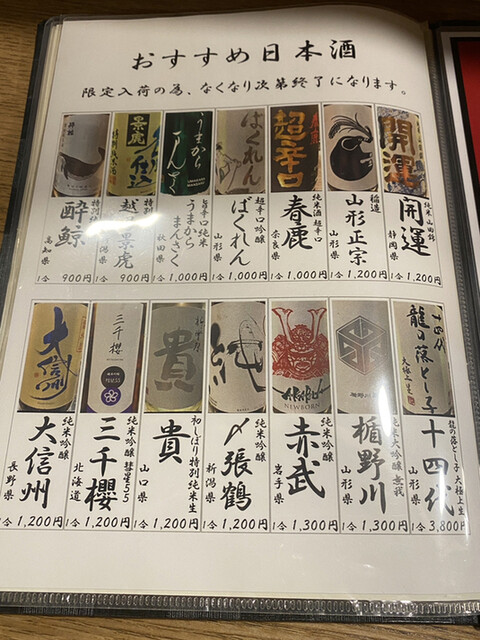 おすすめ日本酒
限定入荷の為、なくなり次第終了になります。
開運
純米 山田錦
開運
静岡県
1合 1,200円
稲造
山形正宗
山形県
1合 1,200円
超辛口
純米酒 超辛口
春鹿
奈良県
1合 1,000円
ばくれん
超辛口 吟醸
ばくれん
山形県
1合 1,000円
うまから
まんさく
旨辛口 純米
うまから
まんさく
秋田県
1合 1,000円
景虎
仕込
特別
越
景虎
潟県
1合 900円
酔鯨
特別
酔鯨
高知県
1合 900円
十四代
龍の落とし子
大極上生
龍の落とし子 大極上生
十四代
山形県
1合 3,800円
楯野川
純米大吟醸 無我
楯野川
山形県
1合 1,300円
AKABU
NEWBORN
純米吟醸
赤武
岩手県
1合 1,300円
純
純米吟醸
〆張鶴
新潟県
1合 1,200円
貴
初しぼり 特別純米生
貴
山口県
1合 1,200円
三千櫻
純米吟醸 彗星55
三千櫻
北海道
1合 1,200円
大信州
純米吟醸
大信州
長野県
1合 1,200円